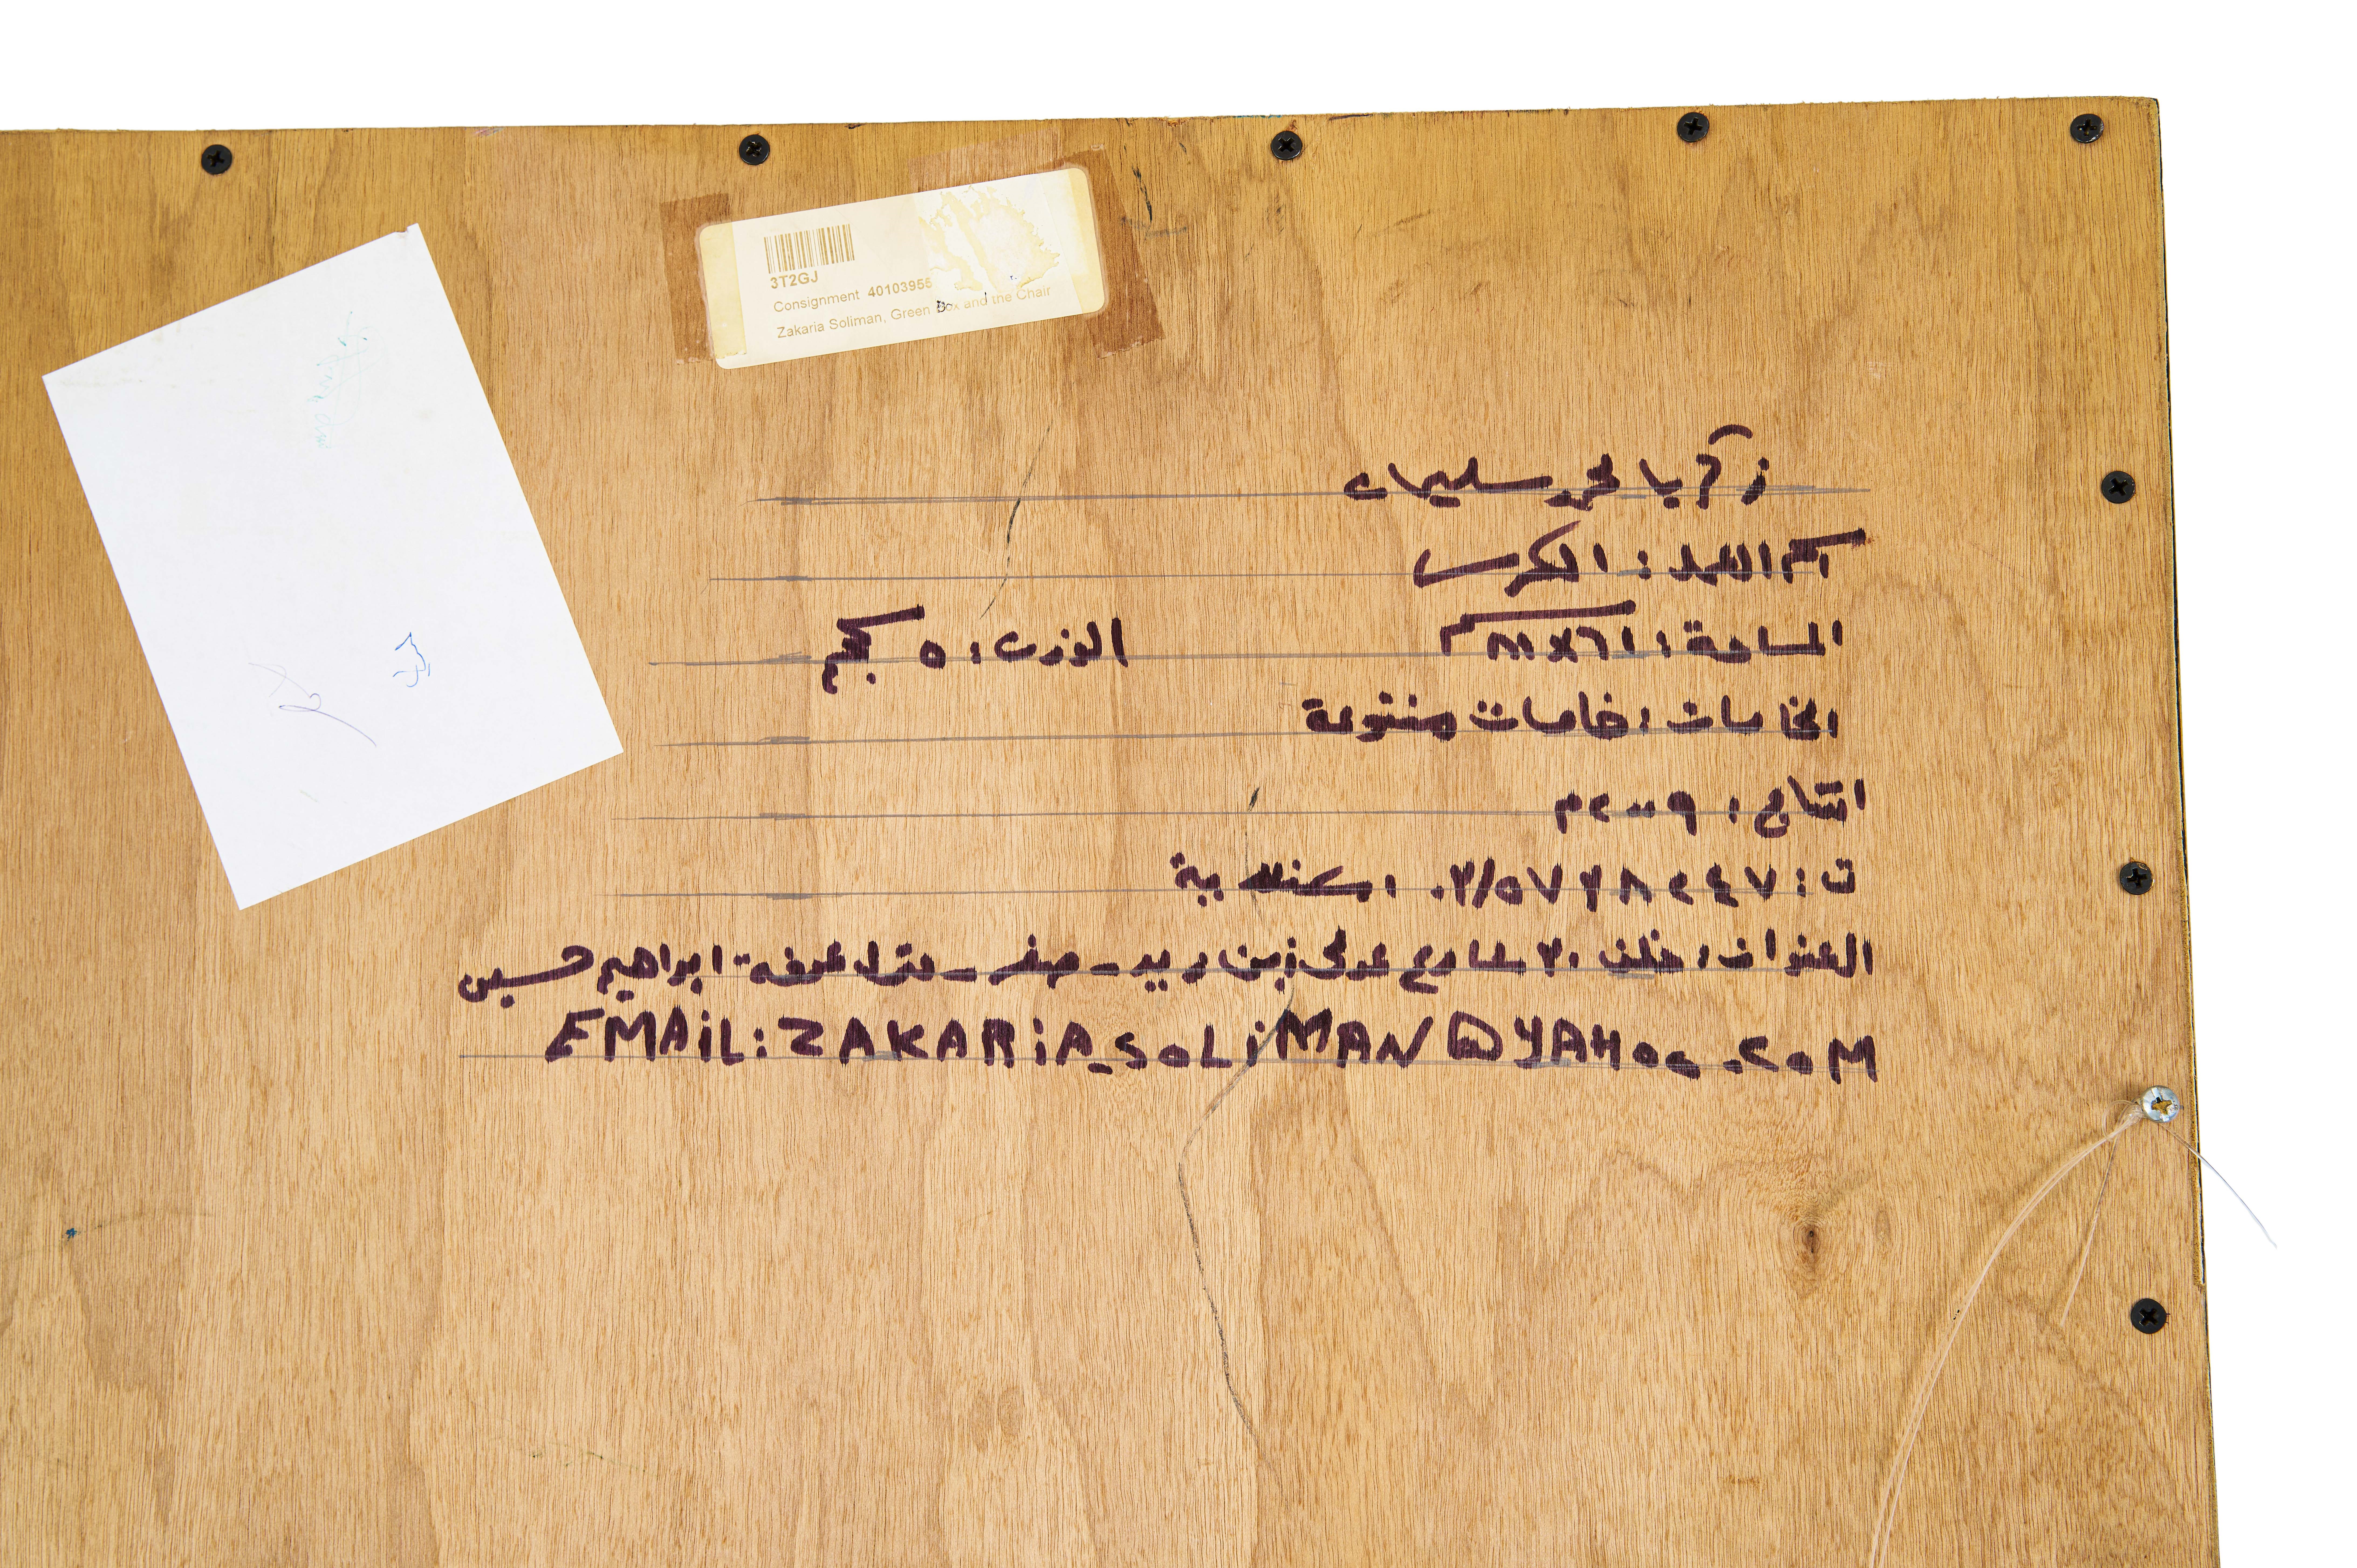 3T2GJ
Consignment 40103955
Zakaria Soliman, Green Box and the Chair
زكريا محمد سليمان
اسم العمل : الكرسى
المساحة : ٦١×٨١سم
الوزن : ٥ كجم
الخامات : خامات متنوعة
انتاج : ٢٠٠٩م
ت : ٠٣/٥٧٣٨٢٤٧ اسكندرية
العنوان : خلف ٢٠ شارع على بن - منزل عرفة ابراهيم حسين
EMAiL: ZAKARiA_SOLiMAN@YAHOO.COM